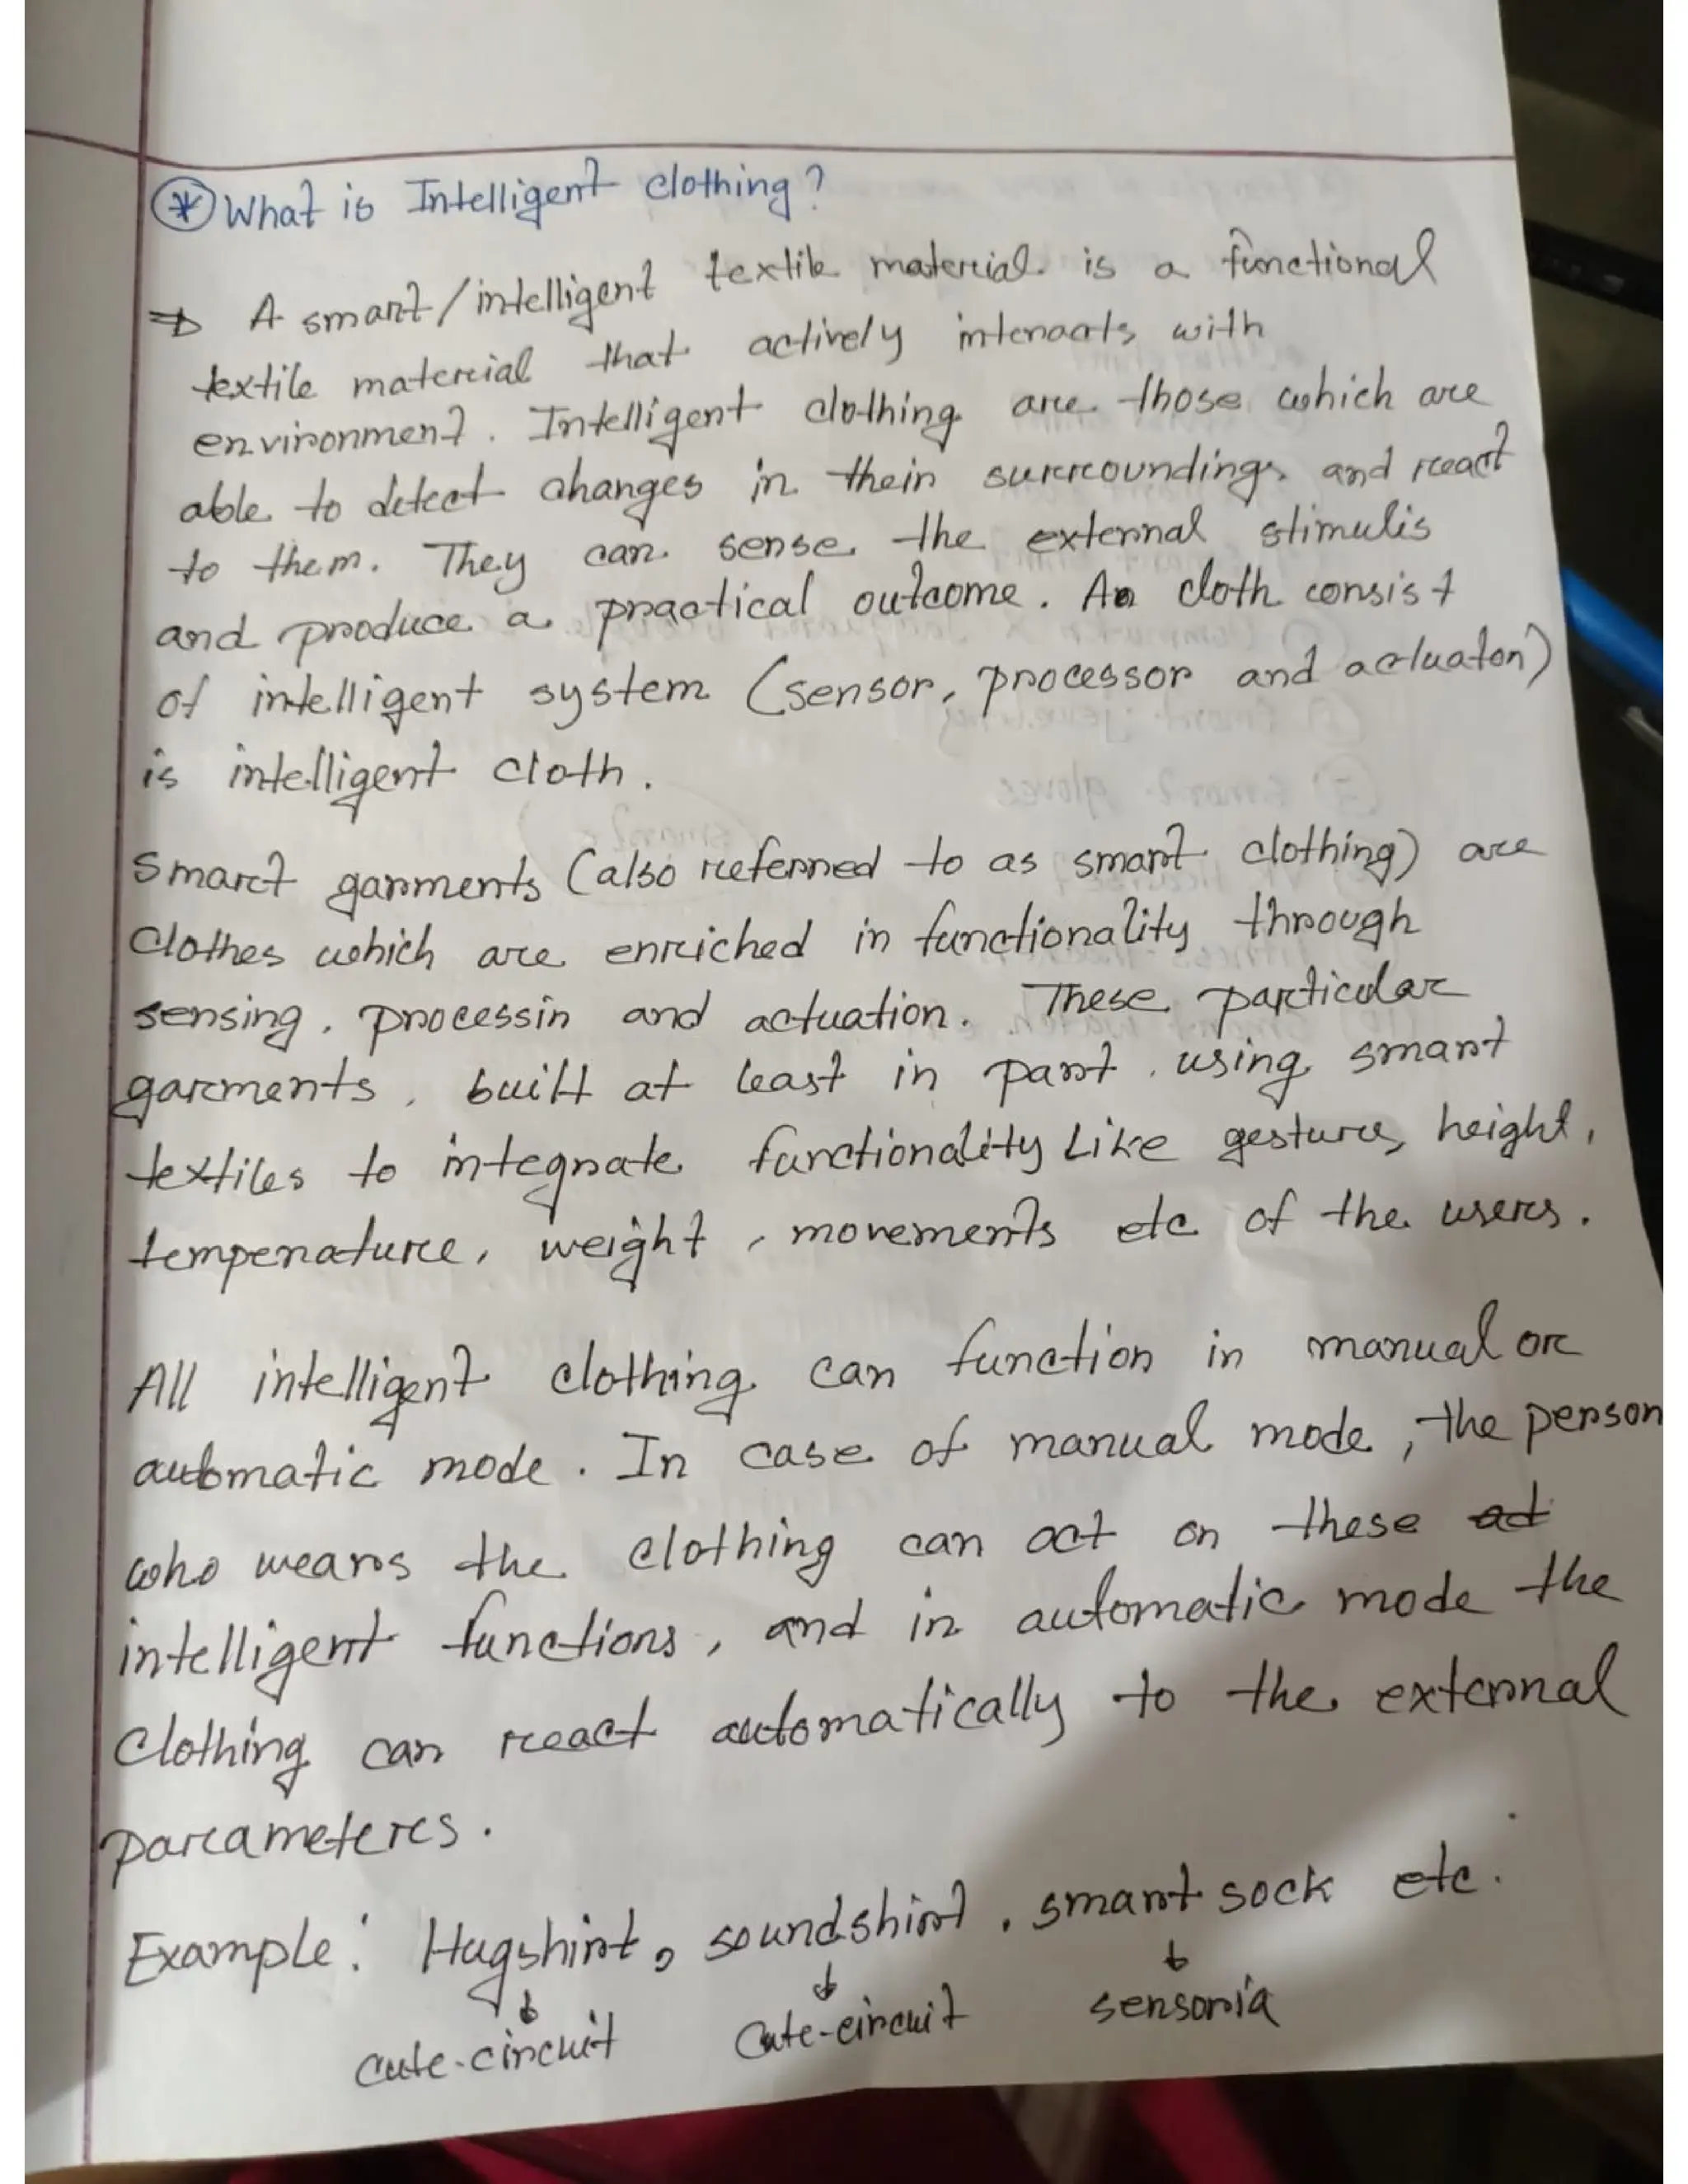 * What is Intelligent clothing?
⇒ A smart/intelligent textile material is a functional
textile material that actively interacts with
environment. Intelligent clothing are those which are
able to detect changes in their surroundings and react
to them. They can sense the external stimulis
and produce a practical outcome. A cloth consist
of intelligent system (sensor, processor and actuator)
is intelligent cloth.
Smart garments (also referred to as smart clothing) are
clothes which are enriched in functionality through
sensing, processin and actuation. These particular
garments, built at least in part, using smart
textiles to integrate functionality Like gestures, height,
temperature, weight, movements etc of the users.
All intelligent clothing can function in manual or
automatic mode. In case of manual mode, the person
who wears the clothing can act on these
intelligent functions, and in automatic mode the
Clothing can react automatically to the external
parameters.
Example: Hugshirt, soundshirt, smart sock etc.
↓ ↓ ↓
cute-circuit Cute-circuit sensoria